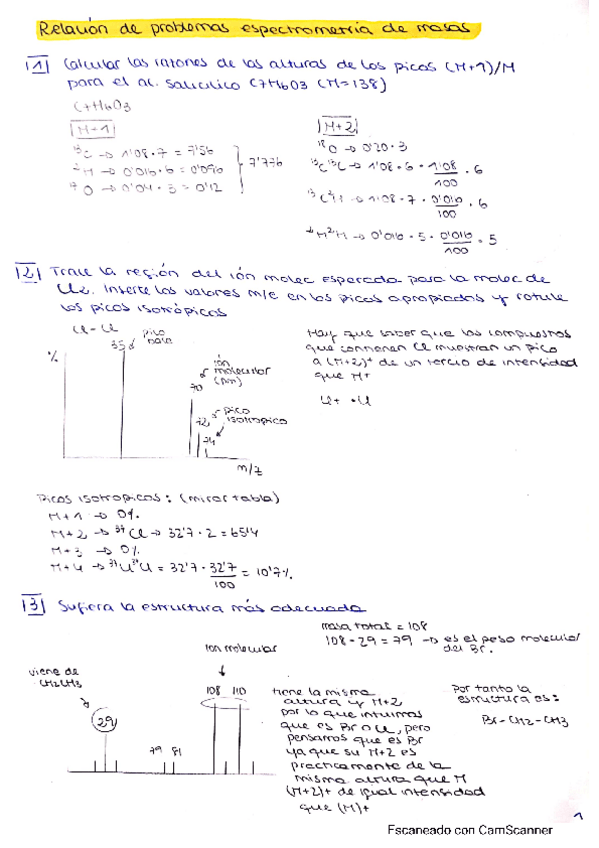 Relación de problemas espectrometría de masas
1 Calcular las razones de las alturas de los picos (M+1)/M
para el ac. salicílico C7H6O3 (M=138)
C7H6O3
M+1
13C → 1'08 · 7 = 7'56
2H → 0'016 · 6 = 0'096
17O → 0'04 · 3 = 0'12
7'776
M+2
18O → 0'20 · 3
13C13C → 1'08 · 6 · 1'08/100 · 6
13C2H → 1'08 · 7 · 0'016/100 · 6
2H2H → 0'016 · 5 · 0'016/100 · 5
2 Trace la región del ión molec esperada para la molec de
Cl2. Inserte los valores m/e en los picos apropiados y rotule
los picos isotópicos
Cl-Cl
%
35
pico base
ión molecular
70
72
pico isotropico
74
m/z
Hay que saber que los compuestos
que contienen Cl muestran un pico
a (M+2)+ de un tercio de intensidad
que M+
Cl+ ·Cl
Picos isotropicos: (mirar tabla)
M+1 → 0%
M+2 → 37Cl → 32'7 · 2 = 65'4
M+3 → 0%
M+4 → 37Cl37Cl = 32'7 · 32'7/100 = 10'7%
3 Sugiera la estructura más adecuada
masa total = 108
108 - 29 = 79 → es el peso molecular
del Br.
Ion molecular
viene de
CH2CH3
29
79 81
108 110
tiene la misma
altura y M+2
por lo que intuimos
que es Br o Cl, pero
pensamos que es Br
ya que su M+2 es
practicamente de la
misma altura que M
(M+2)+ de igual intensidad
que (M)+
Por tanto la
estructura es:
Br-CH2-CH3
1
Escaneado con CamScanner